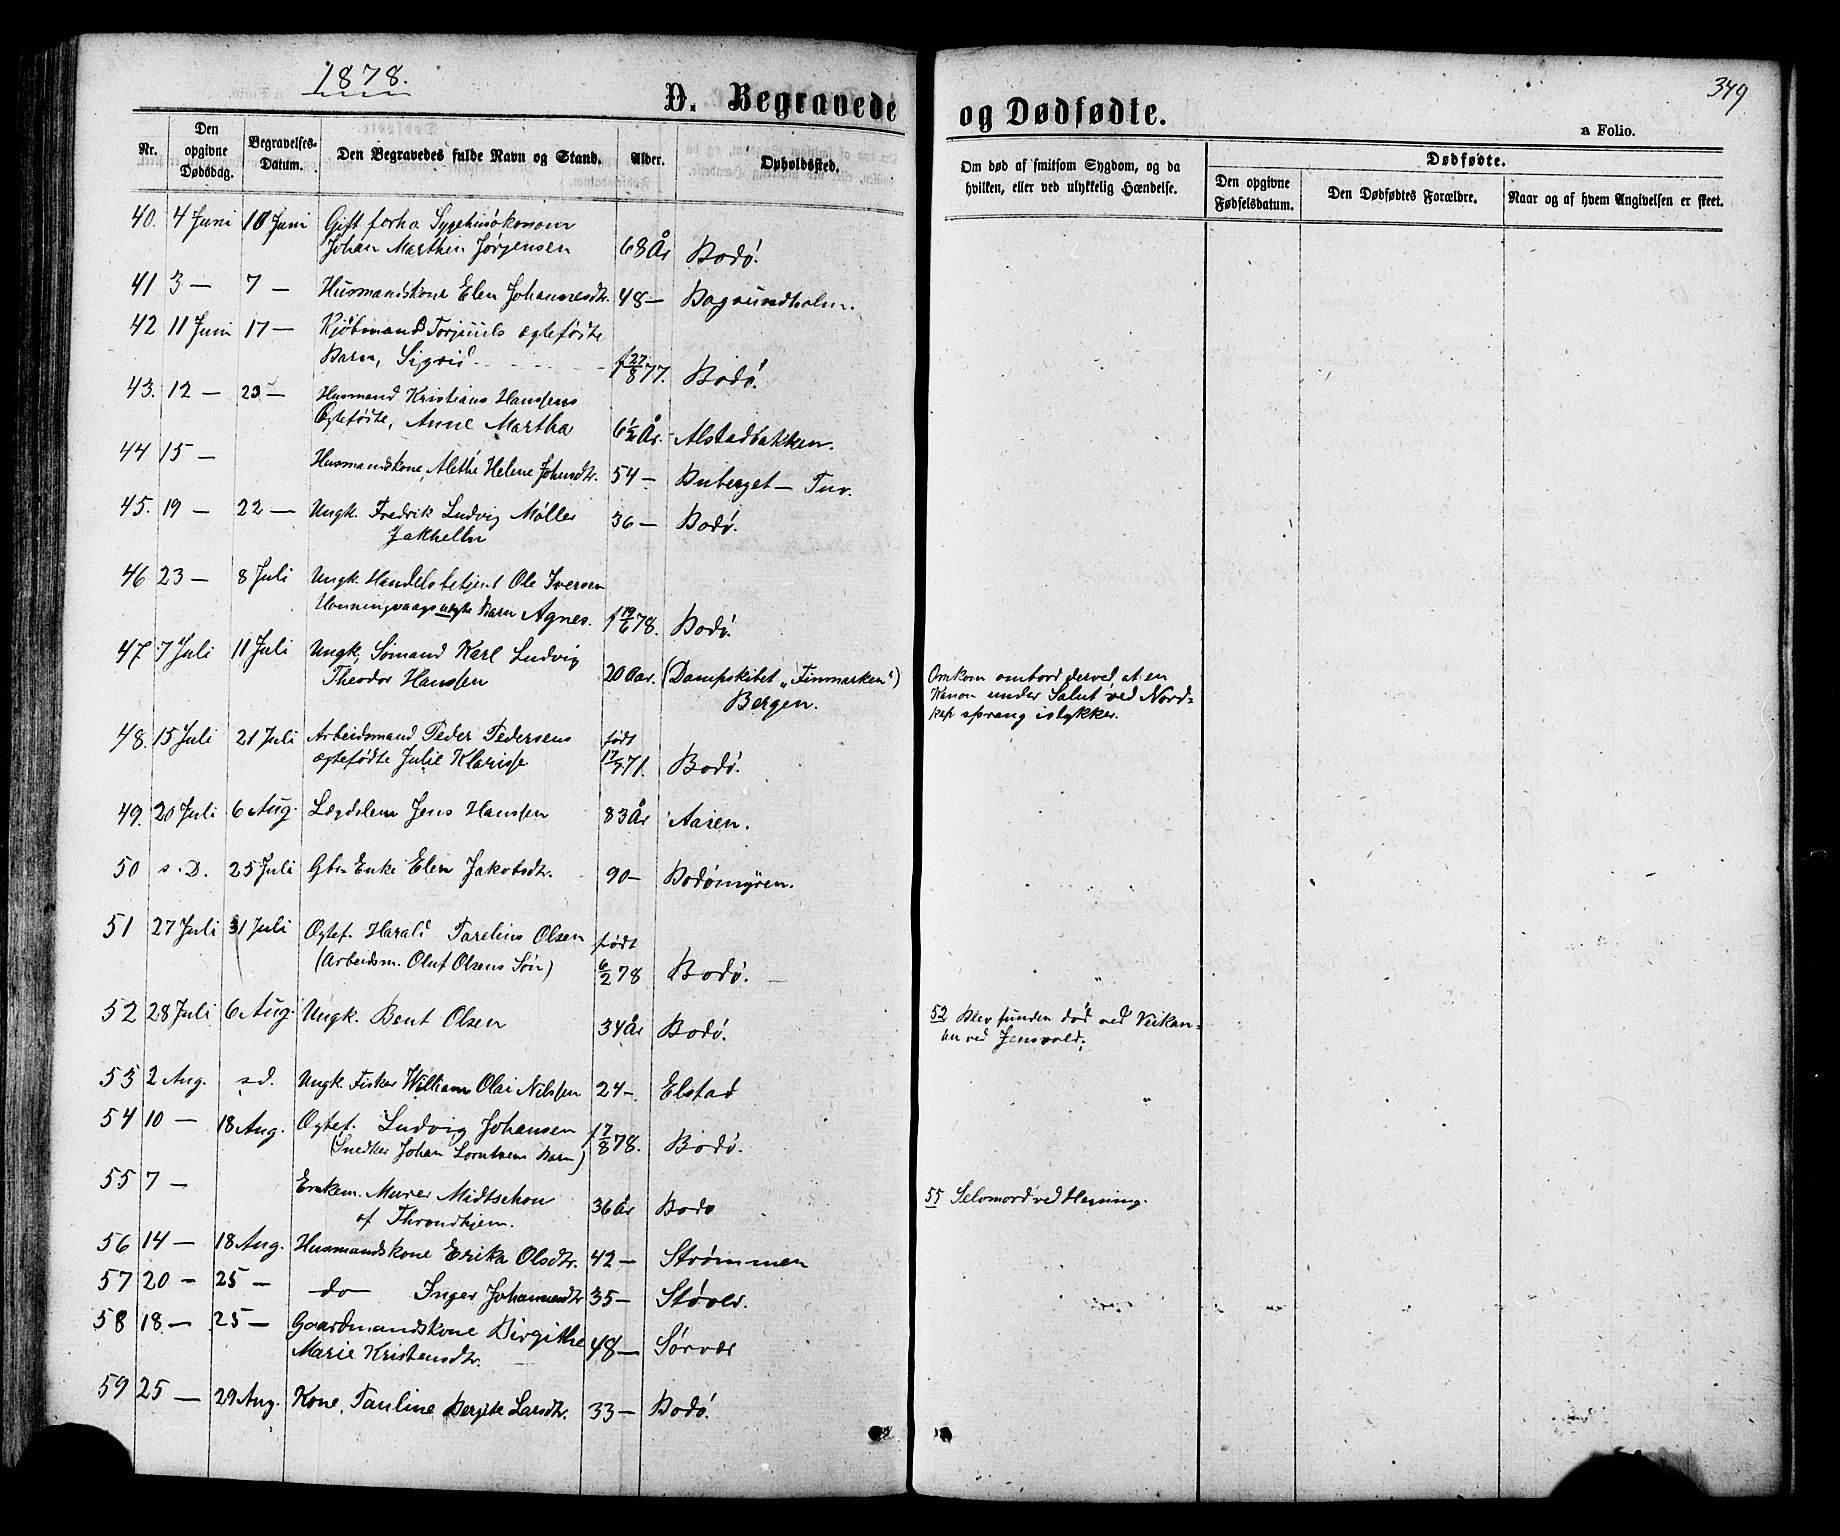 1878.
349
D. Begravede og Dødfødte.
a Folio.
Nr. Den opgivne Dødsdag. Begravelses-Datum. Den Begravedes fulde Navn og Stand. Alder. Opholdssted. Om død af smitsom Sygdom, og da hvilken, eller ved ulykkelig Hændelse. Dødfødte.
Den opgivne Fødselsdatum. Den Dødfødtes Forældre. Naar og af hvem Angivelsen er skeet.
40. 4 Juni 10 Juni Gift forhv. Sygehusøkonom
Johan Marthin Jørgensen 68 År Bodø.
41 3 — 7 — Husmandskone Elen Johannesdtr. 48 — Bagsundholm.
42 11 Juni 17 — Kjøbmand Torjuuls ægtefødte
Barn, Sigrid f 27/8 77. Bodø.
43. 12 — 23 — Husmand Kristians Hanssens
Ægtefødte, Anne Martha 6½ År. Alstadbakken.
44 15 — Husmandskone, Alethe Helene Johnsdtr. 54 — Buberget — Tuv.
45. 19 — 22 — Ungk. Fredrik Ludvig Møller
Jakhelln 36 — Bodø.
46 23 — 8 Juli Ungk. Handelsbetjent Ole Iversen
Honningvaags uægte Barn Agnes. f 19/6 78. Bodø.
47. 7 Juli 11 Juli Ungk, Sømand Karl Ludvig
Theodor Hanssen 20 Aar. (Dampskibet „Finmarken")
Bergen.
Omkom ombord derved, at en
Kanon under Salut ved Nord=
kap sprang istykker.
48. 15 Juli 21 Juli Arbeidsmand Peder Pedersens født
ægtefødte Julie Klarisse 17/7 71. Bodø.
49. 20 Juli 6 Aug. Lægdslem Jens Hanssen 83 År Aasen.
50 s. D. 25 Juli Gbr. Enke Elen Jakobsdtr. 90 — Bodømyren.
51 27 Juli 31 Juli Ægtef. Harald Parelius Olsen født
(Arbeidsm. Oluf Olsens Søn) 6/2 78 Bodø.
52 28 Juli 6 Aug. Ungk. Bent Olsen 34 År Bodø.
52 Blev funden død ved Veikan=
ten ved Jensvold.
53 2 Aug. s.d. Ungk Fisker William Olai Nilssen 24 — Elstad
54 10 — 18 Aug. Ægtef. Ludvig Johansen
(Snedker Johan Lorntsens Barn) f 7/8 78. Bodø.
55 7 — Enkem. Murer Midtschou
af Throndhjem. 36 År Bodø
55 Selvmord ved Hængning.
56 14 — 18 Aug. Husmandskone Erika Olsdtr. 42 — Strømmen
57 20 — 25 — do — Inger Johannesdtr 35 — Støver.
58 18 — 25 — Gaardmandskone Birgithe
Marie Kristensdtr. 48 — Sørvær
59 25 — 29 Aug. Kone, Pauline Bergite Larsdtr. 33 — Bodø.